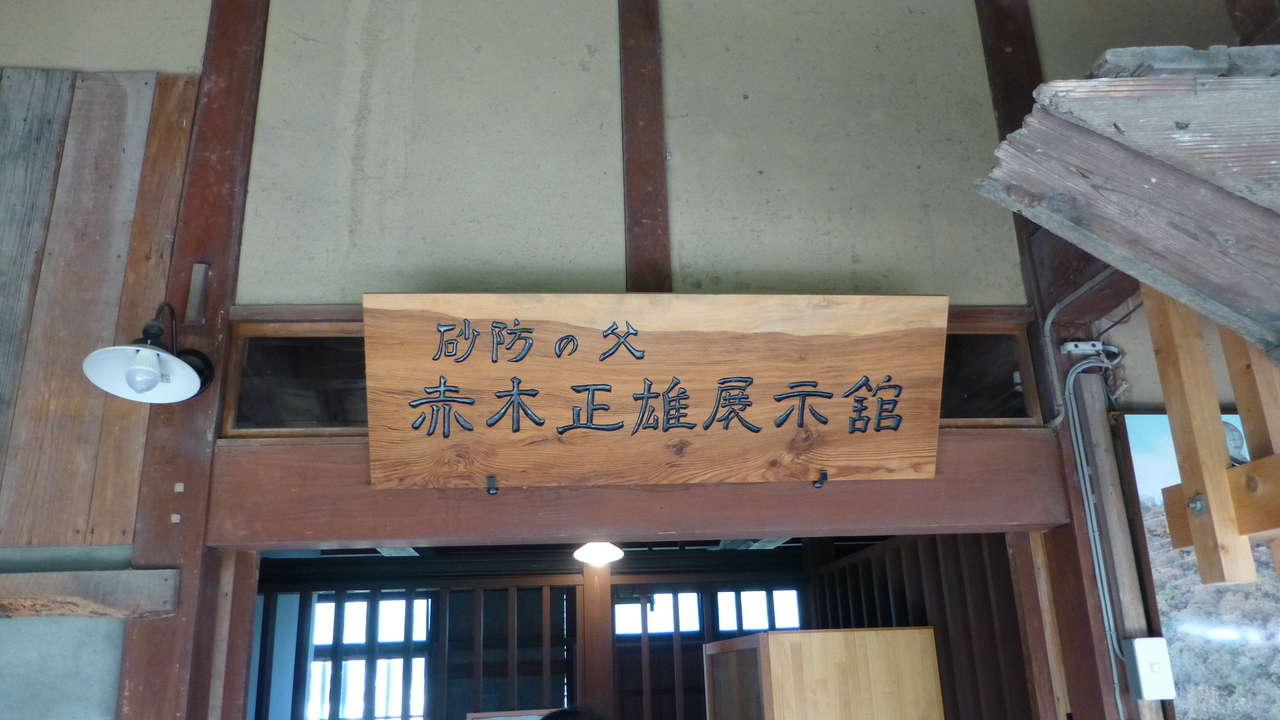 砂防の父
赤木正雄展示館